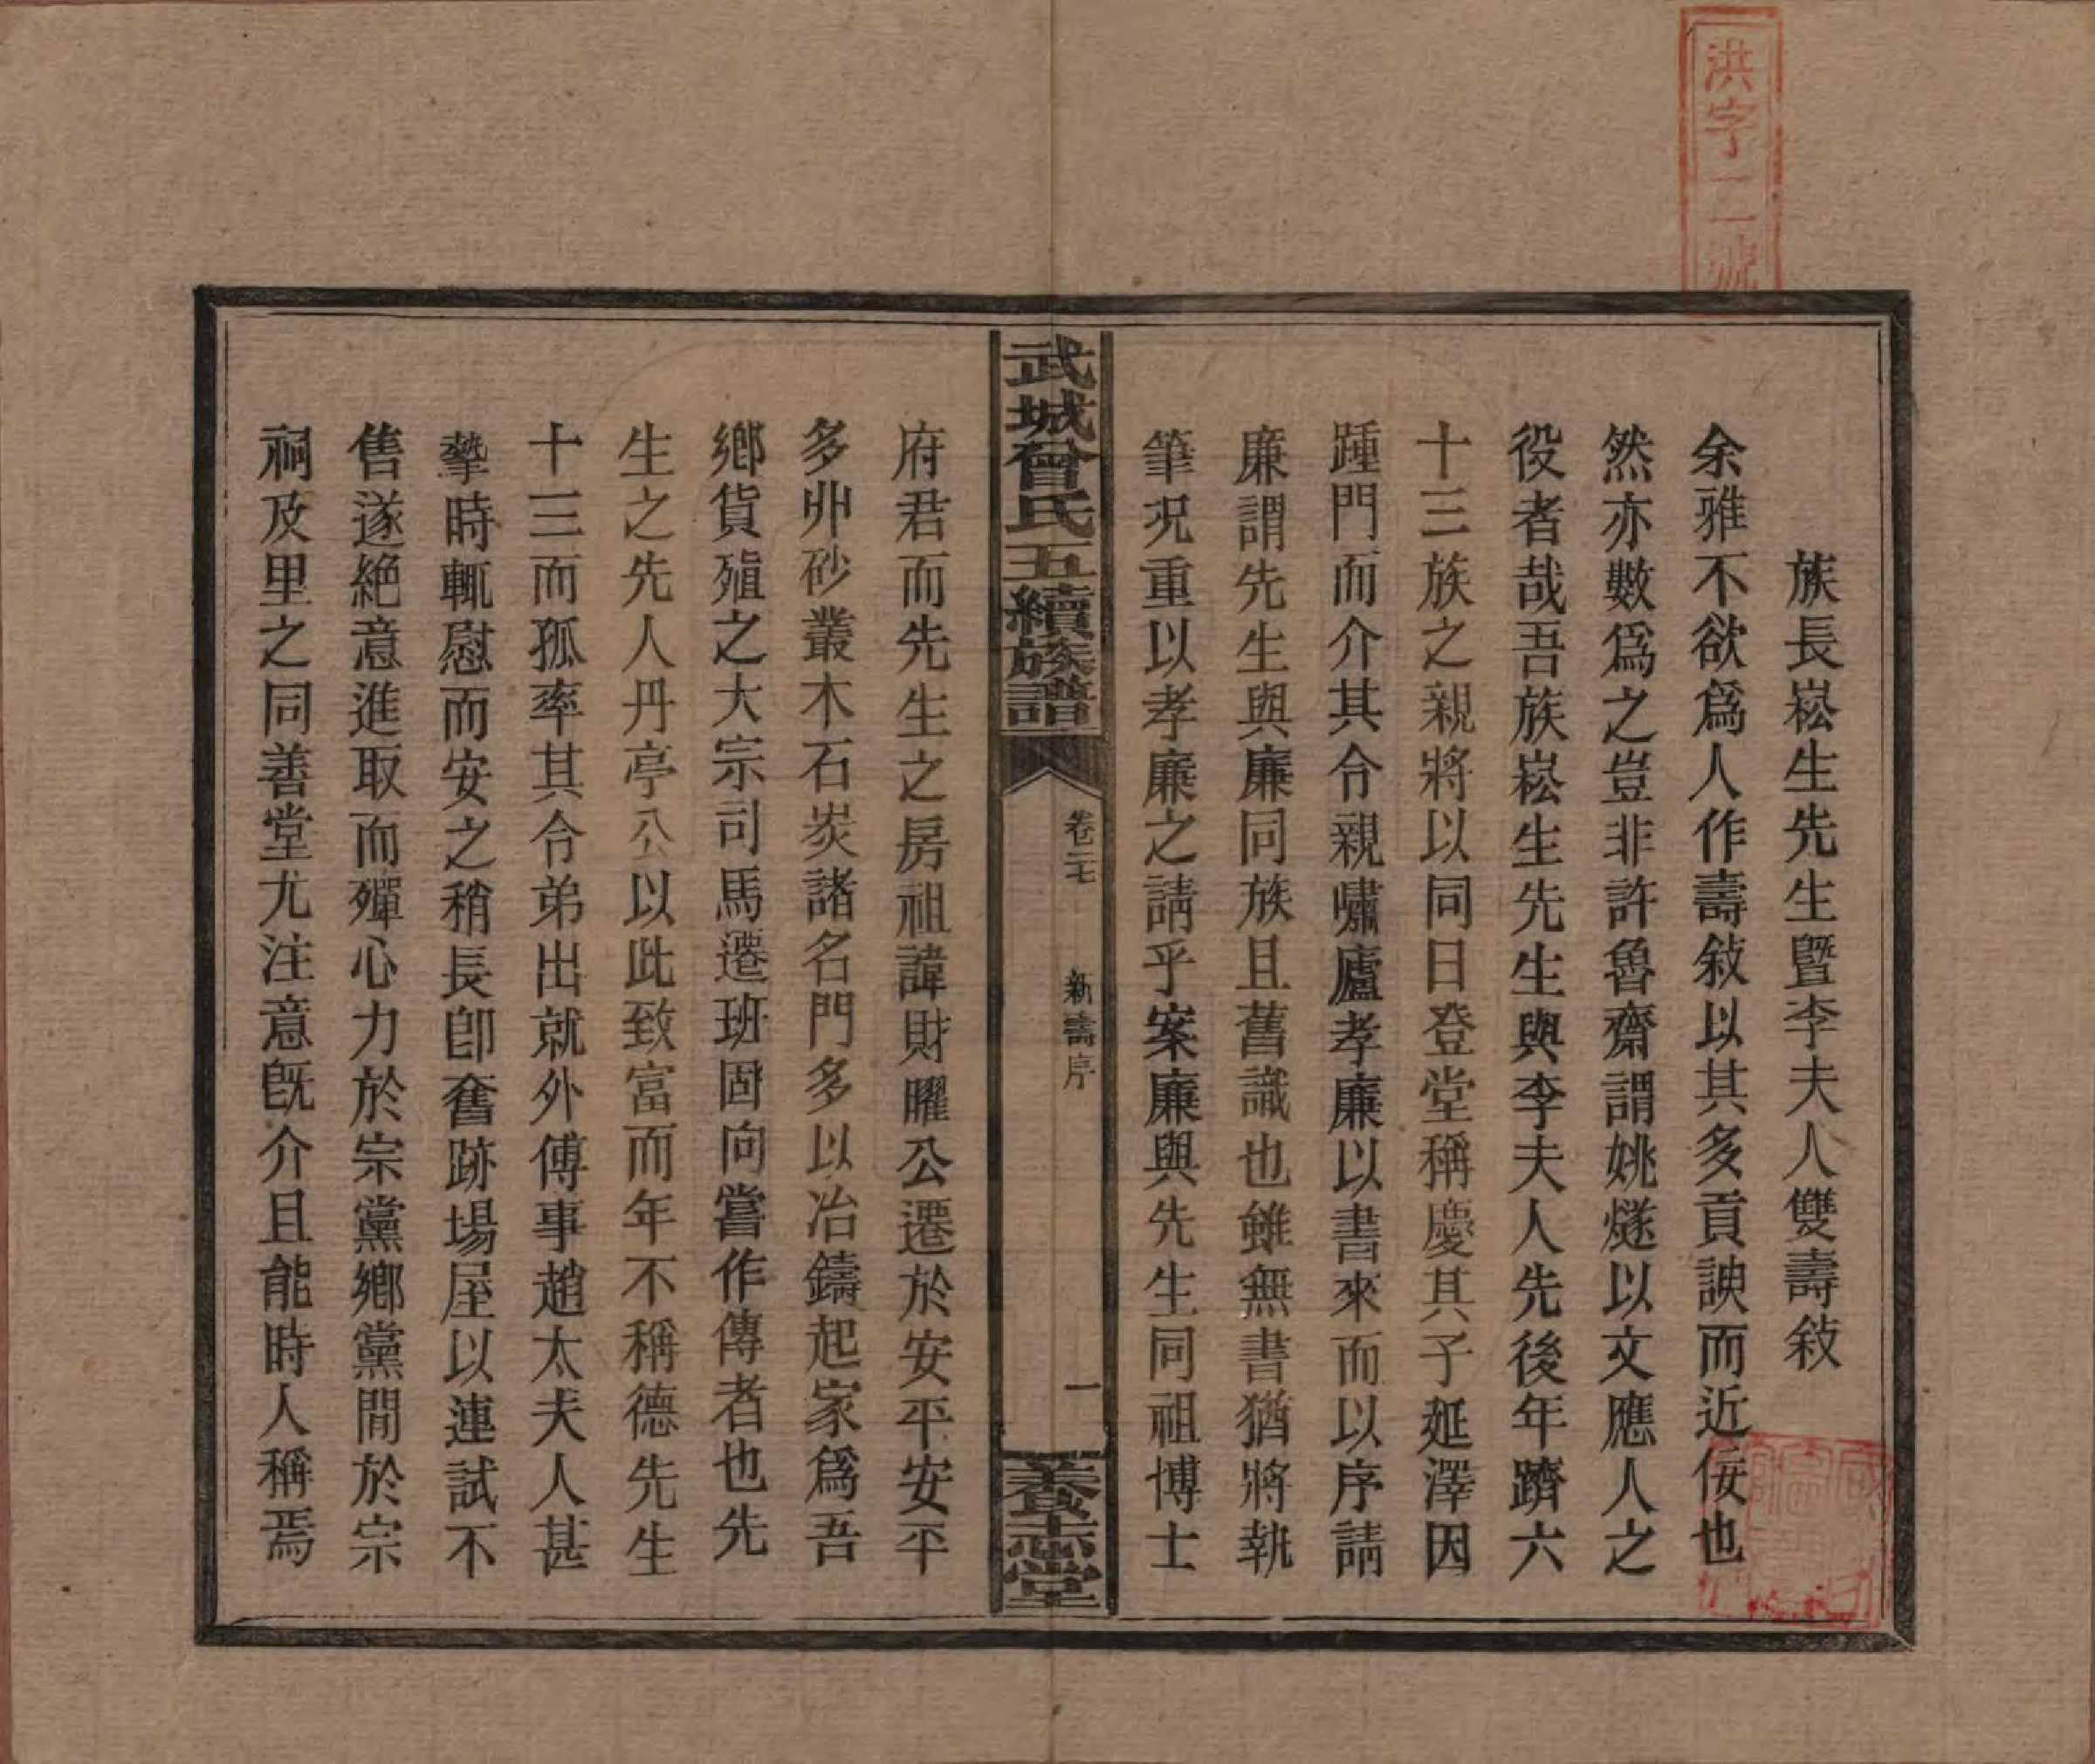 洪字二號
族長崧生先生曁李夫人雙壽敍
余雅不欲爲人作壽敍以其多貢諛而近佞也
然亦數爲之豈非許魯齋謂姚燧以文應人之
役者哉吾族崧生先生與李夫人先後年躋六
十三族之親將以同日登堂稱慶其子延澤因
踵門而介其令親嘯廬孝廉以書來而以序請
廉謂先生與廉同族且舊識也雖無書猶將執
筆況重以孝廉之請乎案廉與先生同祖博士
武城曾氏五續族譜
卷二七
新壽序
一
養志堂
府君而先生之房祖諱財曜公遷於安平安平
多丱砂叢木石炭諸名門多以冶鑄起家爲吾
鄉貨殖之大宗司馬遷班固向嘗作傳者也先
生之先人丹亭公以此致富而年不稱德先生
十三而孤率其令弟出就外傅事趙太夫人甚
摯時輒慰而安之稍長卽奮跡場屋以連試不
售遂絕意進取而殫心力於宗黨鄉黨間於宗
祠及里之同善堂尤注意旣介且能時人稱焉